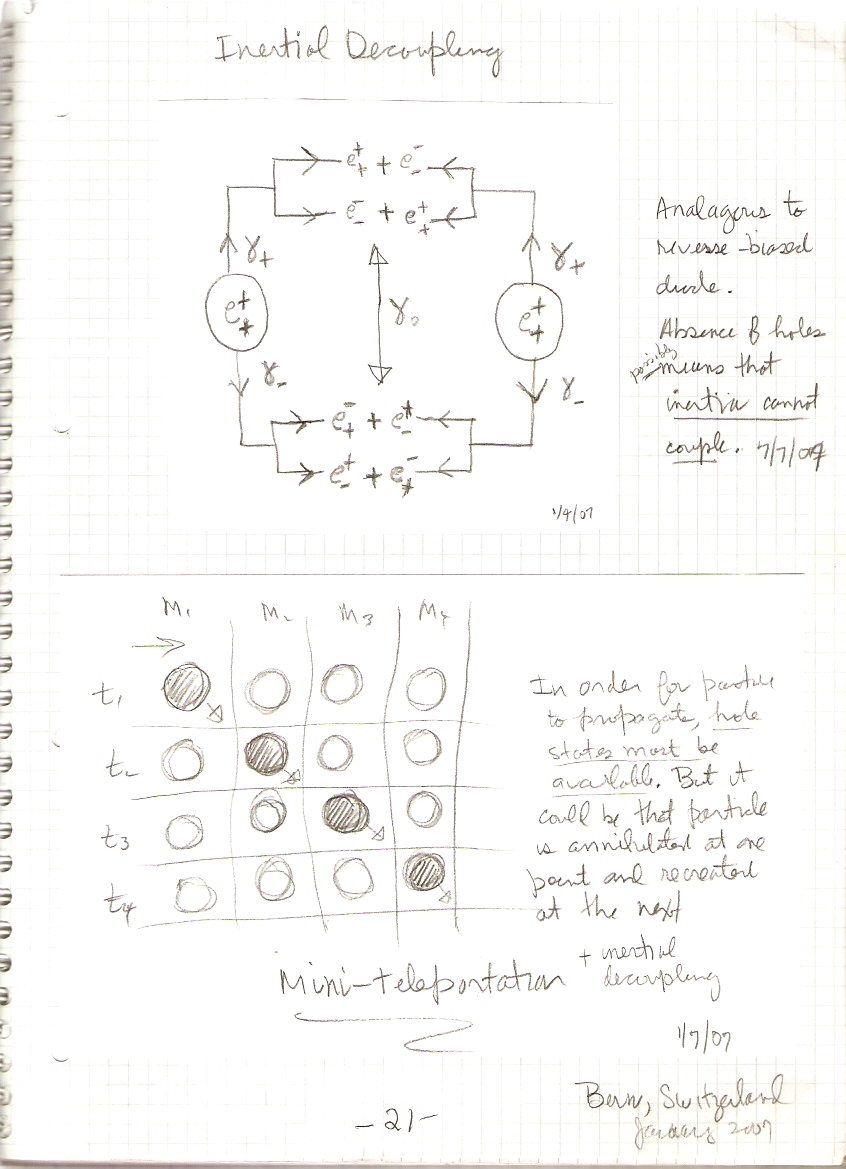 Inertial Decoupling
e⁺₊ + e⁻₋
e⁻₋ + e⁺₊
γ₊ γ₊
e⁺₊ γ₀ e⁺₊
γ₋ γ₋
e⁻₊ + e⁺₋
e⁺₋ + e⁻₊
1/4/07
Analagous to
reverse-biased
diode.
Absence of holes
possibly means that
inertia cannot
couple. 7/7/07
M₁ M₂ M₃ M₄
t₁
t₂
t₃
t₄
In order for particle
to propagate, hole
states must be
available. But it
could be that particle
is annihilated at one
point and recreated
at the next
Mini-teleportation
+ inertial
decoupling
1/7/07
Bern, Switzerland
January 2007
-21-